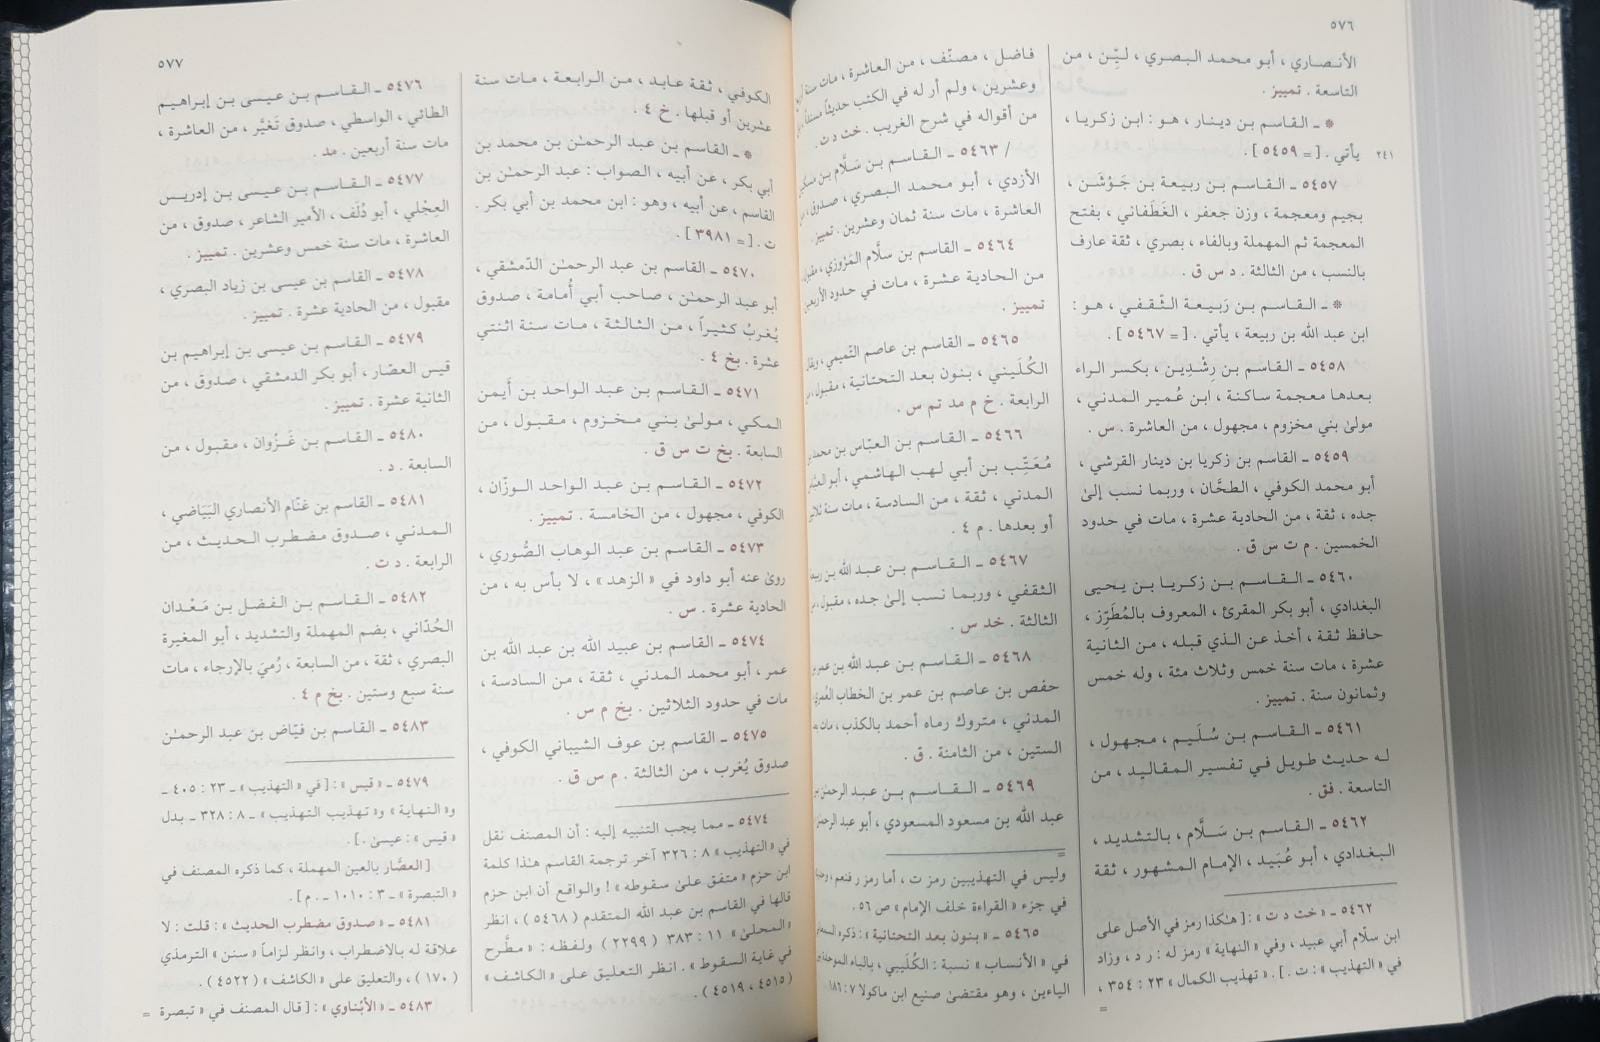 ٥٧٦
الأنصاري ، أبو محمد البصري ، ليِّن ، من
التاسعة . تمييز .
* ـ القاسم بن دينار ، هو : ابن زكريا ،
يأتي . [ = ٥٤٥٩ ] .
٢٤١
٥٤٥٧ ـ القاسم بن ربيعة بن جَوْشَن ،
بجيم ومعجمة ، وزن جعفر ، الغَطَفاني ، بفتح
المعجمة ثم المهملة وبالفاء ، بصري ، ثقة عارف
بالنسب ، من الثالثة . د س ق .
* ـ القاسم بن رَبيعة الثَّقفي ، هو :
ابن عبد الله بن ربيعة ، يأتي . [ = ٥٤٦٧ ] .
٥٤٥٨ ـ القاسم بن رِشْدِين ، بكسر الراء
بعدها معجمة ساكنة ، ابن عُمير المدني ،
مولىٰ بني مخزوم ، مجهول ، من العاشرة . س .
٥٤٥٩ ـ القاسم بن زكريا بن دينار القرشي ،
أبو محمد الكوفي ، الطحَّان ، وربما نسب إلىٰ
جده ، ثقة ، من الحادية عشرة ، مات في حدود
الخمسين . م ت س ق .
٥٤٦٠ ـ القاسم بن زكريا بن يحيى
البغدادي ، أبو بكر المقرئ ، المعروف بالمُطَرِّز ،
حافظ ثقة ، أخذ عن الذي قبله ، من الثانية
عشرة ، مات سنة خمس وثلاث مئة ، وله خمس
وثمانون سنة . تمييز .
٥٤٦١ ـ القاسم بن سُلَيم ، مجهول ،
له حديث طويل في تفسير المقاليد ، من
التاسعة . فق .
٥٤٦٢ ـ القاسم بن سَلَّام ، بالتشديد ،
البغدادي ، أبو عُبَيد ، الإمام المشهور ، ثقة
٥٤٦٢ ـ « خت د ت » : [ هكذا رمز في الأصل على
ابن سلّام أبي عبيد ، وفي « النهاية » رمز له : ر د ، وزاد
في « التهذيب » : ت . ] . « تهذيب الكمال » ٢٣ : ٣٥٤ ،
=
فاضل ، مصنّف ، من العاشرة ، مات سنة
وعشرين ، ولم أر له في الكتب حديثاً مسنداً
من أقواله في شرح الغريب . خت د ت .
/ ٥٤٦٣ ـ القاسم بن سَلَّام بن مسكين
الأزدي ، أبو محمد البصري ، صدوق ،
العاشرة ، مات سنة ثمان وعشرين . تمييز .
٥٤٦٤ ـ القاسم بن سلَّام المَرْوزي ،
من الحادية عشرة ، مات في حدود الأربعين
تمييز .
٥٤٦٥ ـ القاسم بن عاصم التَّميمي ،
الكُلَيني ، بنون بعد التحتانية ، مقبول ،
الرابعة . خ م مد تم س .
٥٤٦٦ ـ القاسم بن العبّاس بن محمد
مُعَتِّب بن أبي لهب الهاشمي ، أبو
المدني ، ثقة ، من السادسة ، مات سنة
أو بعدها . م ٤ .
٥٤٦٧ ـ القاسم بن عبد الله بن ربيعة
الثقفي ، وربما نسب إلىٰ جده ، مقبول ،
الثالثة . خد س .
٥٤٦٨ ـ القاسم بن عبد الله بن عمر
حفص بن عاصم بن عمر بن الخطاب العُمري
المدني ، متروك رماه أحمد بالكذب ،
الستين ، من الثامنة . ق .
٥٤٦٩ ـ القاسم بن عبد الرحمٰن
عبد الله بن مسعود المسعودي ، أبو عبد الرحمن
=
وليس في التهذيبين رمز ت ، أما رمز ر فنعم ،
في جزء « القراءة خلف الإمام » ص ٥٦ .
٥٤٦٥ ـ « بنون بعد التحتانية » : ذكره
في « الأنساب » نسبة : الكُلَيبي ، بالياء
الياءين ، وهو مقتضىٰ صنيع ابن ماكولا ٧ : ١٨٦
٥٧٧
الكوفي ، ثقة عابد ، من الرابعة ، مات سنة
عشرين أو قبلها . خ ٤ .
* ـ القاسم بن عبد الرحمٰن بن محمد بن
أبي بكر ، عن أبيه ، الصواب : عبد الرحمٰن بن
القاسم ، عن أبيه ، وهو : ابن محمد بن أبي بكر .
ت . [ = ٣٩٨١ ] .
٥٤٧٠ ـ القاسم بن عبد الرحمٰن الدّمشقي ،
أبو عبد الرحمٰن ، صاحب أبي أُمامة ، صدوق
يُغربُ كثيراً ، من الثالثة ، مات سنة اثنتي
عشرة . بخ ٤ .
٥٤٧١ ـ القاسم بن عبد الواحد بن أَيمن
المكي ، مولىٰ بني مخزوم ، مقبول ، من
السابعة . بخ ت س ق .
٥٤٧٢ ـ القاسم بن عبد الواحد الوزّان ،
الكوفي ، مجهول ، من الخامسة . تمييز .
٥٤٧٣ ـ القاسم بن عبد الوهاب الصُّوري ،
روىٰ عنه أبو داود في « الزهد » ، لا بأس به ، من
الحادية عشرة . س .
٥٤٧٤ ـ القاسم بن عبيد الله بن عبد الله بن
عمر ، أبو محمد المدني ، ثقة ، من السادسة ،
مات في حدود الثلاثين . بخ م س .
٥٤٧٥ ـ القاسم بن عوف الشيباني الكوفي ،
صدوق يُغرب ، من الثالثة . م س ق .
٥٤٧٤ ـ مما يجب التنبيه إليه : أن المصنف نقل
في « التهذيب » ٨ : ٣٢٦ آخر ترجمة القاسم هٰذا كلمة
ابن حزم « متفق علىٰ سقوطه » ! والواقع أن ابن حزم
قالها في القاسم بن عبد الله المتقدم ( ٥٤٦٨ ) ، انظر
« المحلىٰ » ١١ : ٣٨٣ ( ٢٢٩٩ ) ولفظه : « مطَّرح
في غاية السقوط » . انظر التعليق على « الكاشف »
( ٤٥١٥ ، ٤٥١٩ ) .
٥٤٧٦ ـ القاسم بن عيسى بن إبراهيم
الطائي ، الواسطي ، صدوق تَغيَّر ، من العاشرة ،
مات سنة أربعين . مد .
٥٤٧٧ ـ القاسم بن عيسى بن إدريس
العِجْلي ، أبو دُلَف ، الأمير الشاعر ، صدوق ، من
العاشرة ، مات سنة خمس وعشرين . تمييز .
٥٤٧٨ ـ القاسم بن عيسى بن زياد البصري ،
مقبول ، من الحادية عشرة . تمييز .
٥٤٧٩ ـ القاسم بن عيسى بن إبراهيم بن
قيس العصّار ، أبو بكر الدمشقي ، صدوق ، من
الثانية عشرة . تمييز .
٥٤٨٠ ـ القاسم بن غَزْوان ، مقبول ، من
السابعة . د .
٥٤٨١ ـ القاسم بن غنّام الأنصاري البَيَاضي ،
المدني ، صدوق مضطرب الحديث ، من
الرابعة . د ت .
٥٤٨٢ ـ القاسم بن الفضل بن مَعْدان
الحُدّاني ، بضم المهملة والتشديد ، أبو المغيرة
البصري ، ثقة ، من السابعة ، رُميَ بالإرجاء ، مات
سنة سبع وستين . بخ م ٤ .
٥٤٨٣ ـ القاسم بن فيّاض بن عبد الرحمٰن
٥٤٧٩ ـ « قيس » : [ في « التهذيب » ـ ٢٣ : ٤٠٥ ـ
و« النهاية » و« تهذيب التهذيب » ـ ٨ : ٣٢٨ ـ بدل
« قيس » : عيسىٰ . ] .
[ العصَّار بالعين المهملة ، كما ذكره المصنف في
« التبصرة » ـ ٣ : ١٠١٠ ـ . م ] .
٥٤٨١ ـ « صدوق مضطرب الحديث » : قلت : لا
علاقة له بالاضطراب ، وانظر لزاماً « سنن » الترمذي
( ١٧٠ ) ، والتعليق على « الكاشف » ( ٤٥٢٢ ) .
٥٤٨٣ ـ « الأبْناوي » : [ قال المصنف في « تبصرة =